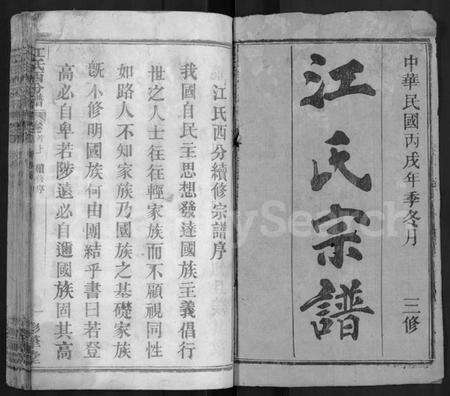 中華民國丙戌年季冬月
江氏宗譜
三修
江氏西分續修宗譜序
我國自民主思想發達國族主義倡行
世之人士往往輕家族而不顧視同性
如路人不知家族乃國族之基礎家族
既不修明國族何由團結乎書曰若登
高必自卑若陟遠必自邇國族固其高